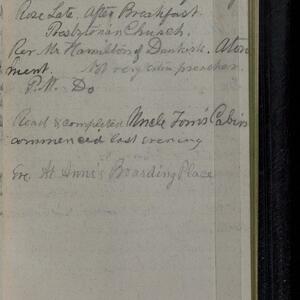 Rose Late. After Breakfast
Presbyterian Church.
Rev Mr Hamilton of Dunkirk. Aton
ment. Not very extra preacher.
P.M. Do
Read & completed Uncle Tom's Cabin
commenced last evening
Eve. At Anne's Boarding Place